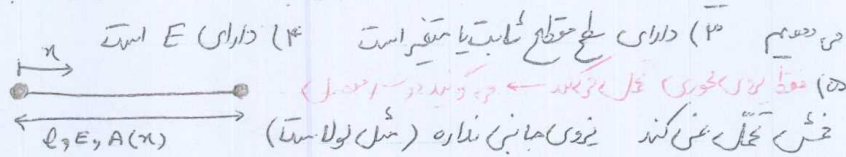 می دهیم ۳) دارای سطح مقطع ثابت یا متغیر است ۴) دارای E است
x
۵) فقط نیروی محوری تحمل می‌کند ← می‌گوئید دو سر مفصل
l, E, A(x)
خمش تحمل نمی کند نیروی جانبی نداره (مثل لولاست)